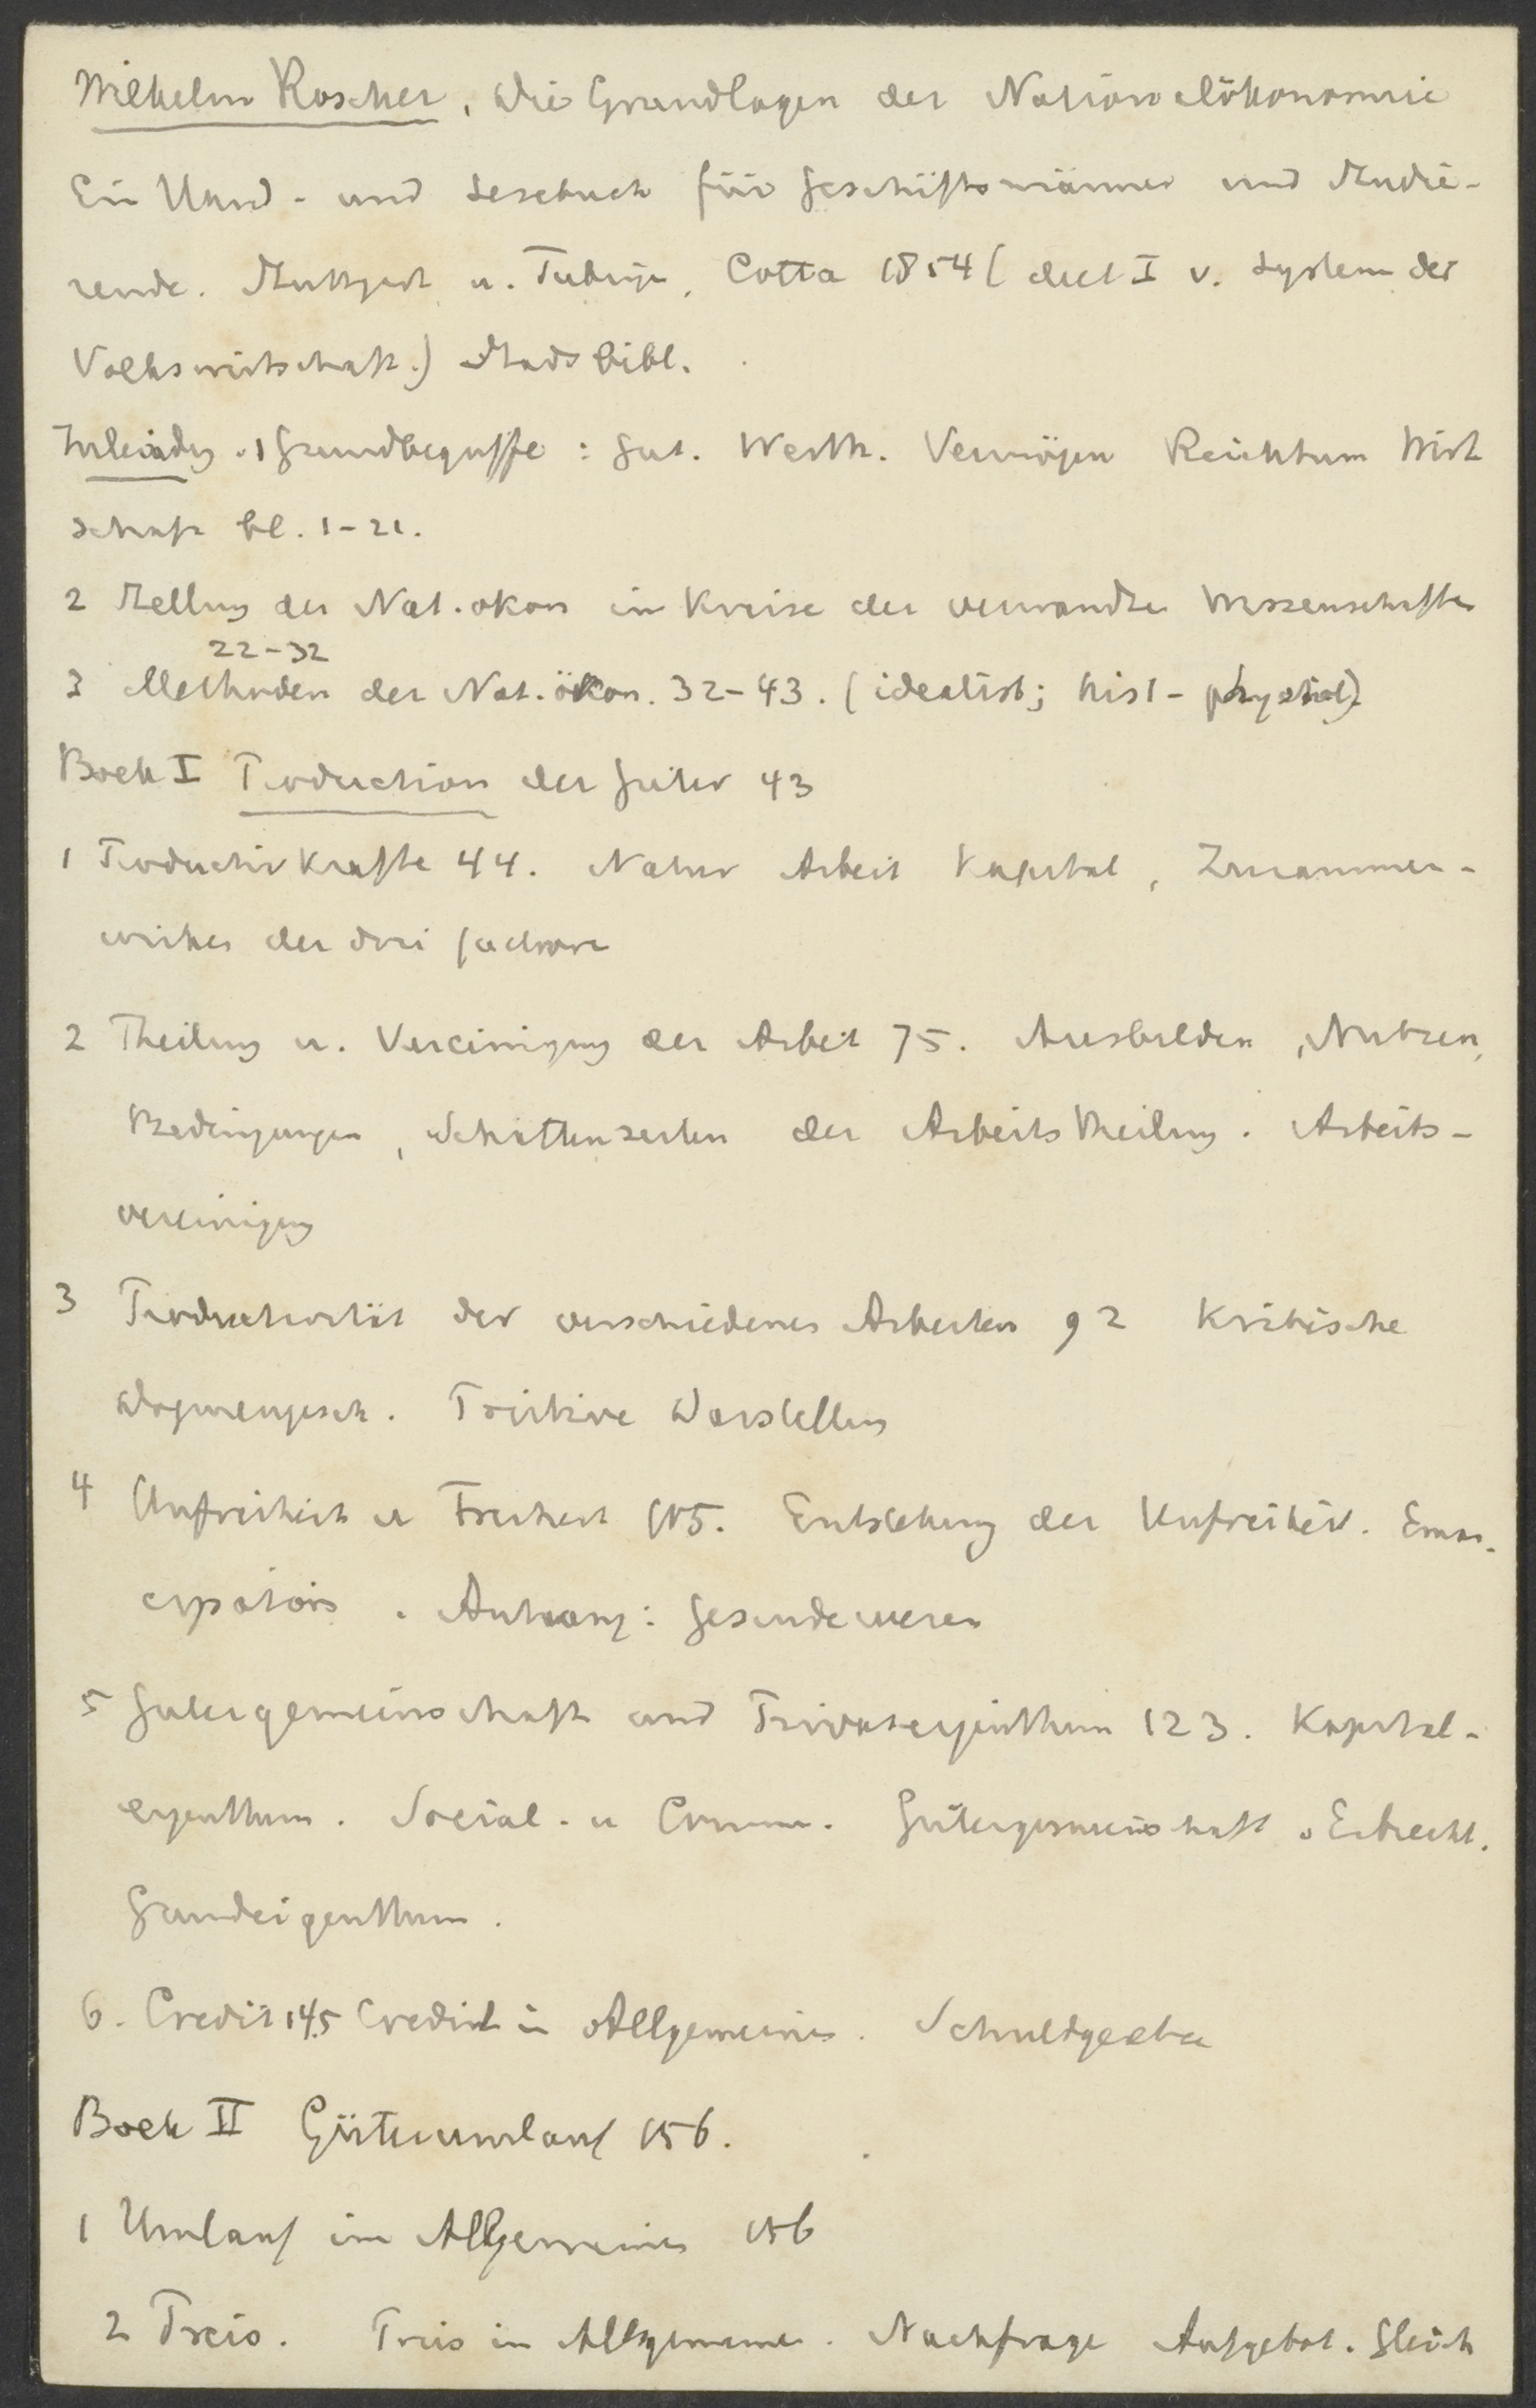 Wilhelm Roscher, Die Grundlagen der Nationalökonomie
Ein Hand- und Lesebuch für Geschäftsmänner und Studie-
rende. Stuttgart u. Tubingen, Cotta 1854 (deel I v. System der
Volkswirtschaft.) Stadsbibl.
Inleiding. 1 Grundbegriffe: Gut. Werth. Vermögen Reichtum Wirt
schaft bl. 1-21.
2 Stellung der Nat. okon im Kreise der verwandten Wissenschaften
22-32
3 Methoden der Nat. ökon. 32-43. (idealist; hist-physiol)
Boek I Production der Güter 43
1 Productivkrafte 44. Natur Arbeit Kapital, Zusammen-
wirken der drei factoren
2 Theilung u. Vereinigung der Arbeit 75. Ausbilden, Nutzen,
Bedingungen, Schattenseiten der Arbeitstheilung. Arbeits-
vereinigung
3 Productivität der verschiedenen Arbeiten 92 Kritische
Dogmengesch. Positive Darstellung
4 Unfreiheit u Freiheit 105. Entstehung der Unfreiheit. Eman-
cipation. Anhang: Gesindewesen
5 Gutergemeinschaft und Privateigenthum 123. Kapital-
eigenthum. Social- u Comm. Gütergemeinschaft. Erbrecht.
Grundeigenthum.
6. Credit 145 Credit im Allgemeinen. Schuldgesetze
Boek II Güterumlauf 156.
1 Umlauf im Allgemeinen 156
2 Preis. Preis im Allgemeinen. Nachfrage Angebot. Gleich